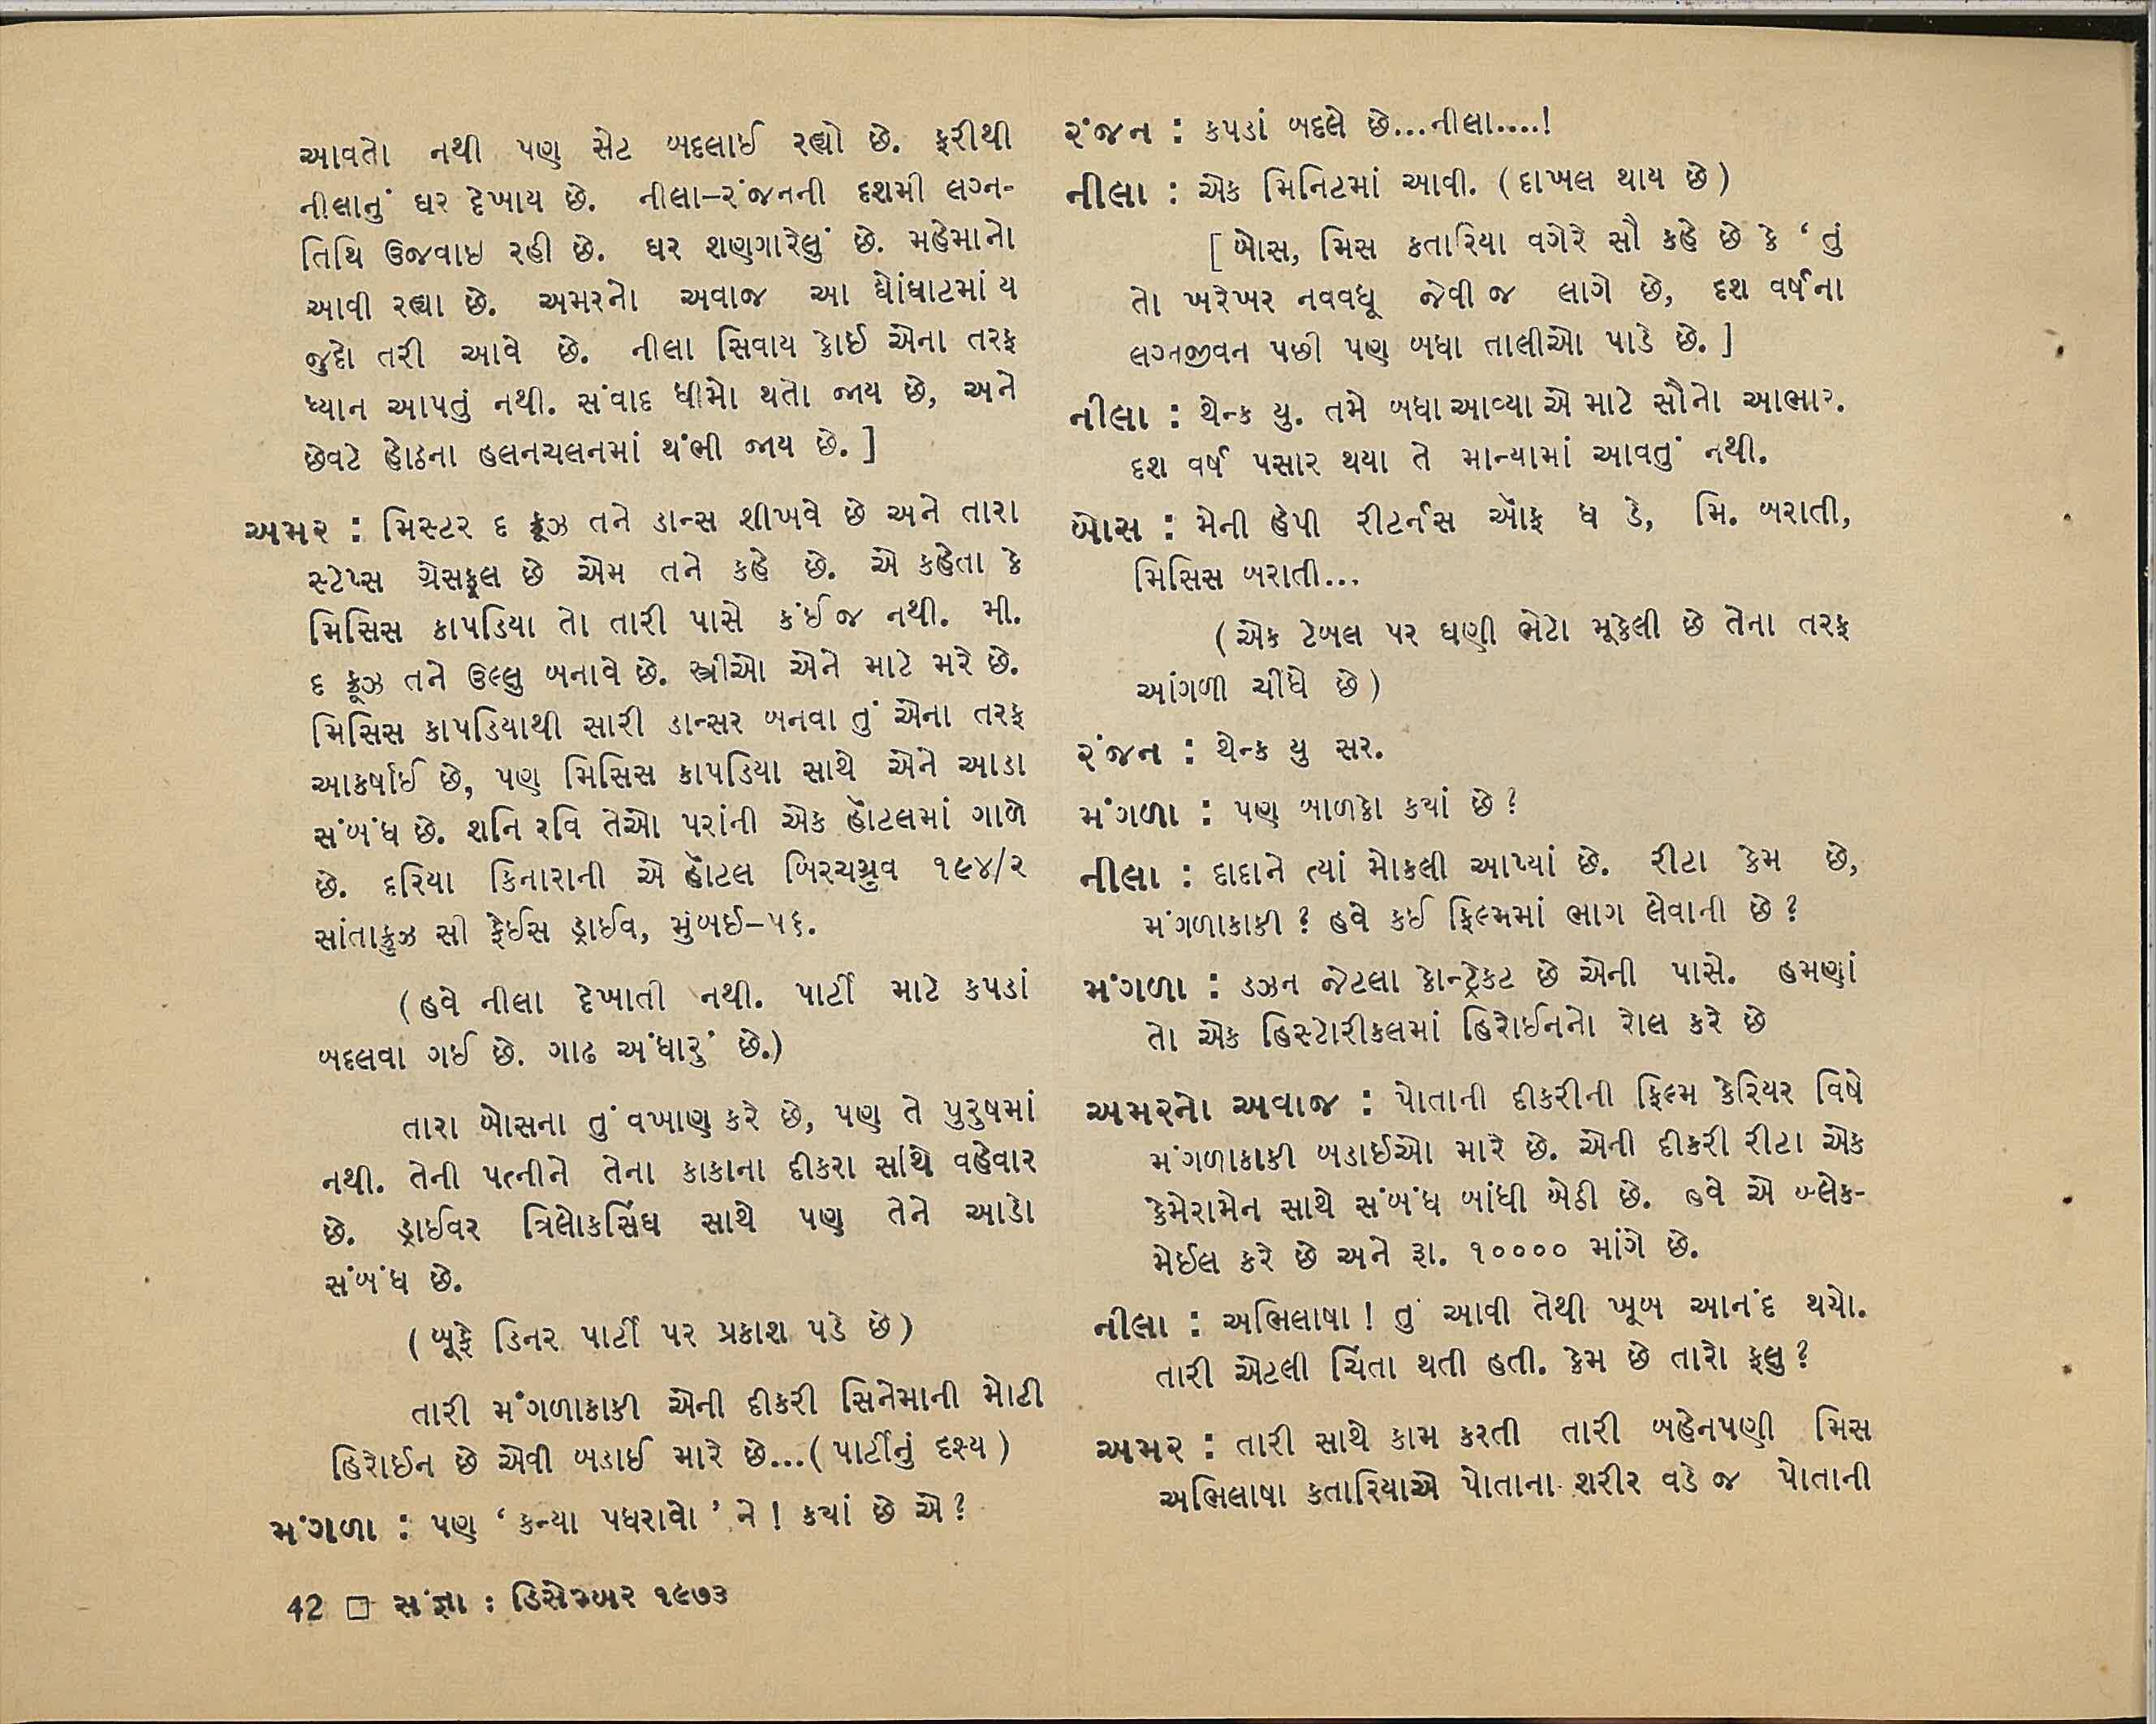 આવતો નથી પણ સેટ બદલાઈ રહ્યો છે. ફરીથી
નીલાનું ઘર દેખાય છે. નીલા–રંજનની દશમી લગ્ન-
તિથિ ઉજવાઇ રહી છે. ઘર શણગારેલું છે. મહેમાનો
આવી રહ્યા છે. અમરનો અવાજ આ ઘોંઘાટમાં ય
જુદો તરી આવે છે. નીલા સિવાય કોઈ એના તરફ
ધ્યાન આપતું નથી. સંવાદ ધીમો થતો જાય છે, અને
છેવટે હોઠના હલનચલનમાં થંભી જાય છે. ]
અમર : મિસ્ટર દ ક્રૂઝ તને ડાન્સ શીખવે છે અને તારા
સ્ટેપ્સ ગ્રેસફૂલ છે એમ તને કહે છે. એ કહેતા કે
મિસિસ કાપડિયા તો તારી પાસે કંઈ જ નથી. મી.
દ ક્રૂઝ તને ઉલ્લુ બનાવે છે. સ્ત્રીઓ એને માટે મરે છે.
મિસિસ કાપડિયાથી સારી ડાન્સર બનવા તું એના તરફ
આકર્ષાઈ છે, પણ મિસિસ કાપડિયા સાથે એને આડા
સંબંધ છે. શનિ રવિ તેઓ પરાંની એક હૉટલમાં ગાળે
છે. દરિયા કિનારાની એ હૉટલ બિરચગ્રુવ ૧૯૪/૨
સાંતાક્રુઝ સી ફેઈસ ડ્રાઈવ, મુંબઈ–૫૬.
(હવે નીલા દેખાતી નથી. પાર્ટી માટે કપડાં
બદલવા ગઈ છે. ગાઢ અંધારું છે.)
તારા બોસના તું વખાણ કરે છે, પણ તે પુરુષમાં
નથી. તેની પત્નીને તેના કાકાના દીકરા સાથે વહેવાર
છે. ડ્રાઈવર ત્રિલોકસિંઘ સાથે પણ તેને આડો
સંબંધ છે.
(બૂફે ડિનર પાર્ટી પર પ્રકાશ પડે છે)
તારી મંગળાકાકી એની દીકરી સિનેમાની મોટી
હિરોઈન છે એવી બડાઈ મારે છે...(પાર્ટીનું દૃશ્ય)
મંગળા : પણ ‘કન્યા પધરાવો’ ને! કયાં છે એ?
42 □ સંજ્ઞા : ડિસેમ્બર ૧૯૭૩
રંજન : કપડાં બદલે છે...નીલા....!
નીલા : એક મિનિટમાં આવી. (દાખલ થાય છે)
[ બોસ, મિસ કતારિયા વગેરે સૌ કહે છે કે ‘તું
તો ખરેખર નવવધૂ જેવી જ લાગે છે, દશ વર્ષના
લગ્નજીવન પછી પણ બધા તાલીઓ પાડે છે. ]
નીલા : થેન્ક યુ. તમે બધા આવ્યા એ માટે સૌનો આભાર.
દશ વર્ષ પસાર થયા તે માન્યામાં આવતું નથી.
બોસ : મેની હેપી રીટર્નસ ઑફ ધ ડે, મિ. બરાતી,
મિસિસ બરાતી...
(એક ટેબલ પર ઘણી ભેટો મૂકેલી છે તેના તરફ
આંગળી ચીંધે છે)
રંજન : થેન્ક યુ સર.
મંગળા : પણ બાળકો કયાં છે?
નીલા : દાદાને ત્યાં મોકલી આપ્યાં છે. રીટા કેમ છે,
મંગળાકાકી? હવે કઈ ફિલ્મમાં ભાગ લેવાની છે?
મંગળા : ડઝન જેટલા કોન્ટ્રેકટ છે એની પાસે. હમણાં
તો એક હિસ્ટોરીકલમાં હિરોઈનનો રોલ કરે છે
અમરનો અવાજ : પોતાની દીકરીની ફિલ્મ કેરિયર વિષે
મંગળાકાકી બડાઈઓ મારે છે. એની દીકરી રીટા એક
કેમેરામેન સાથે સંબંધ બાંધી બેઠી છે. હવે એ બ્લેક-
મેઈલ કરે છે અને રૂા. ૧૦૦૦૦ માંગે છે.
નીલા : અભિલાષા! તું આવી તેથી ખૂબ આનંદ થયો.
તારી એટલી ચિંતા થતી હતી. કેમ છે તારો ફલુ?
અમર : તારી સાથે કામ કરતી તારી બહેનપણી મિસ
અભિલાષા કતારિયાએ પોતાના શરીર વડે જ પોતાની